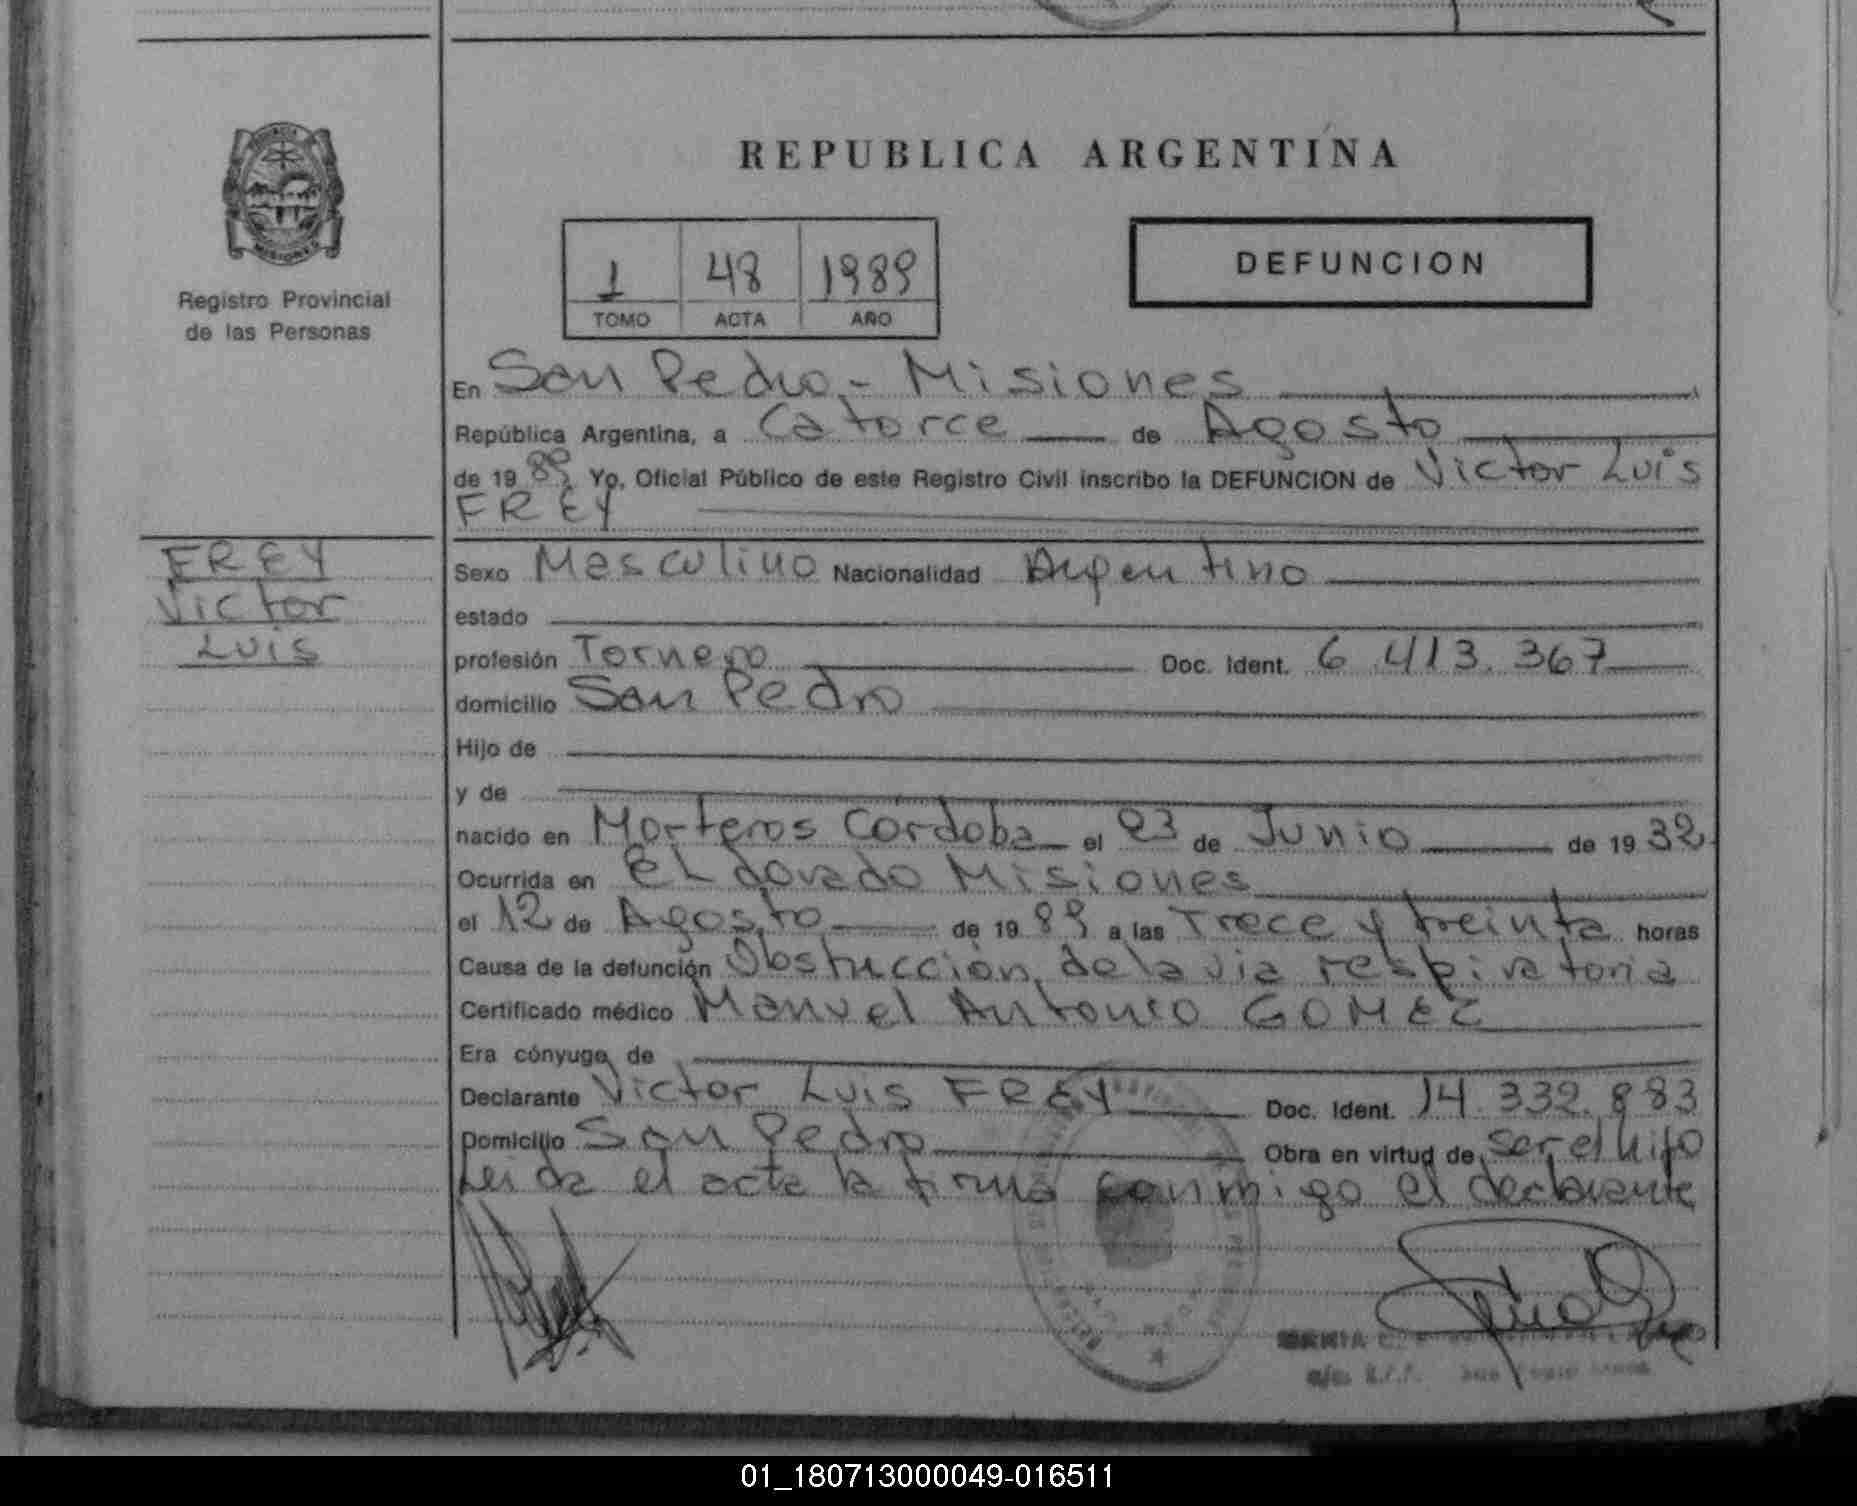 REPUBLICA ARGENTINA
PROVINCIA
MISIONES
Registro Provincial
de las Personas
1 48 1989
TOMO ACTA AÑO
DEFUNCION
En San Pedro - Misiones
República Argentina, a Catorce de Agosto
de 19 89 Yo, Oficial Público de este Registro Civil inscribo la DEFUNCION de Victor Luis
FREY
FREY
Victor
Luis
Sexo Masculino Nacionalidad Argentino
estado
profesión Tornero Doc. Ident. 6.413.367
domicilio San Pedro
Hijo de
y de
nacido en Morteros Córdoba el 23 de Junio de 19 32
Ocurrida en El dorado Misiones
el 12 de Agosto de 19 89 a las Trece y treinta horas
Causa de la defunción Obstrucción de la via respiratoria
Certificado médico Manuel Antonio GOMEZ
Era cónyuge de
Declarante Victor Luis FREY Doc. Ident. 14.332.883
Domicilio San Pedro Obra en virtud de ser el hijo
Leida el acta la firma conmigo el declarante
01_180713000049-016511